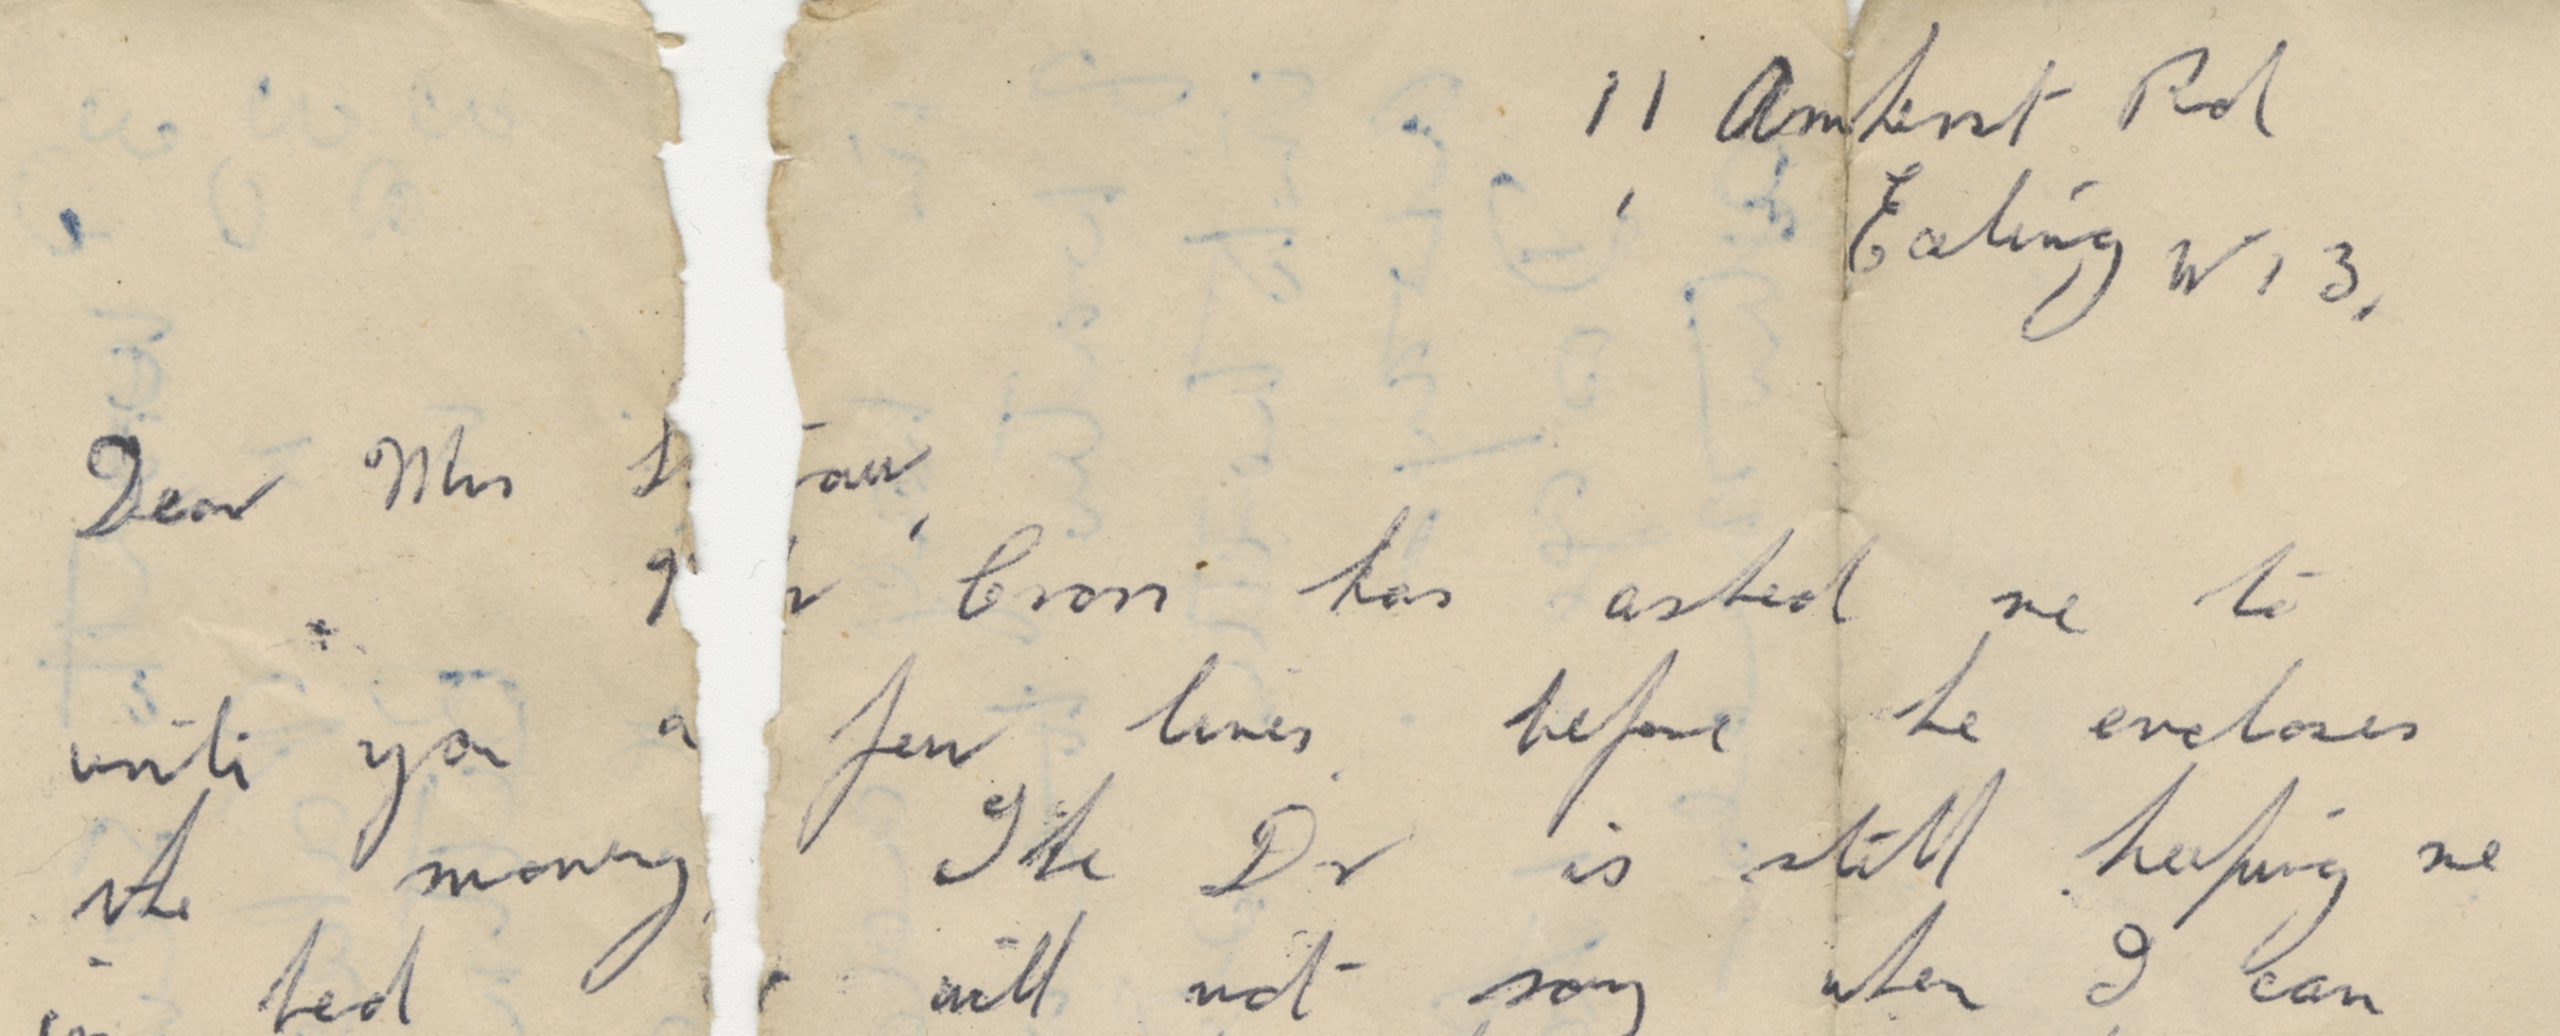 11 Amherst Rd
Ealing W 13.
Dear Mrs
Cross has asked me to
write you a few lines before he encloses
the money. The Dr is still keeping me
in bed will not say when I can